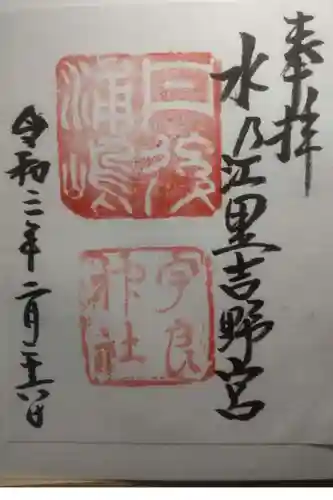 奉拝
水乃江里吉野宮
丹後
浦嶋
宇良
神社
令和三年二月十六日